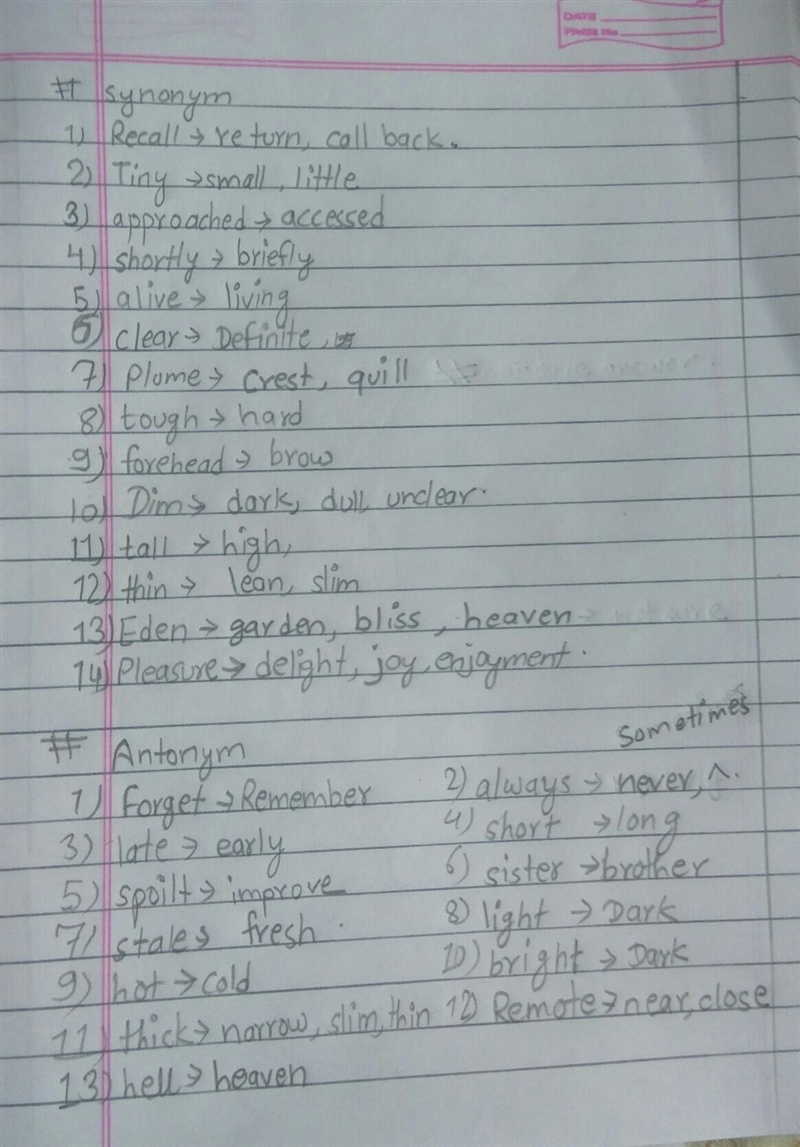 DATE
PAGE No.
# synonym
1) Recall → return, call back.
2) Tiny → small, little
3) approached → accessed
4) shortly → briefly
5) alive → living
6) clear → Definite,
7) Plume → crest, quill
8) tough → hard
9) forehead → brow
10) Dim → dark, dull, unclear.
11) tall → high,
12) thin → lean, slim
13) Eden → garden, bliss, heaven
14) Pleasure → delight, joy, enjoyment.
# Antonym
sometimes
1) Forget → Remember 2) always → never, ^.
3) late → early 4) short → long
5) spoilt → improve 6) sister → brother
7) stale → fresh. 8) light → Dark
9) hot → cold 10) bright → Dark
11) thick → narrow, slim, thin 12) Remote → near, close
13) hell → heaven